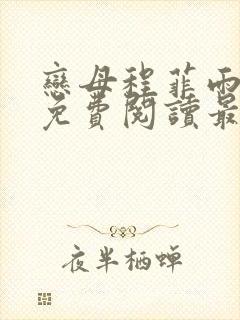 戀母程菲雨
免費閱讀最
夜半栖蝉